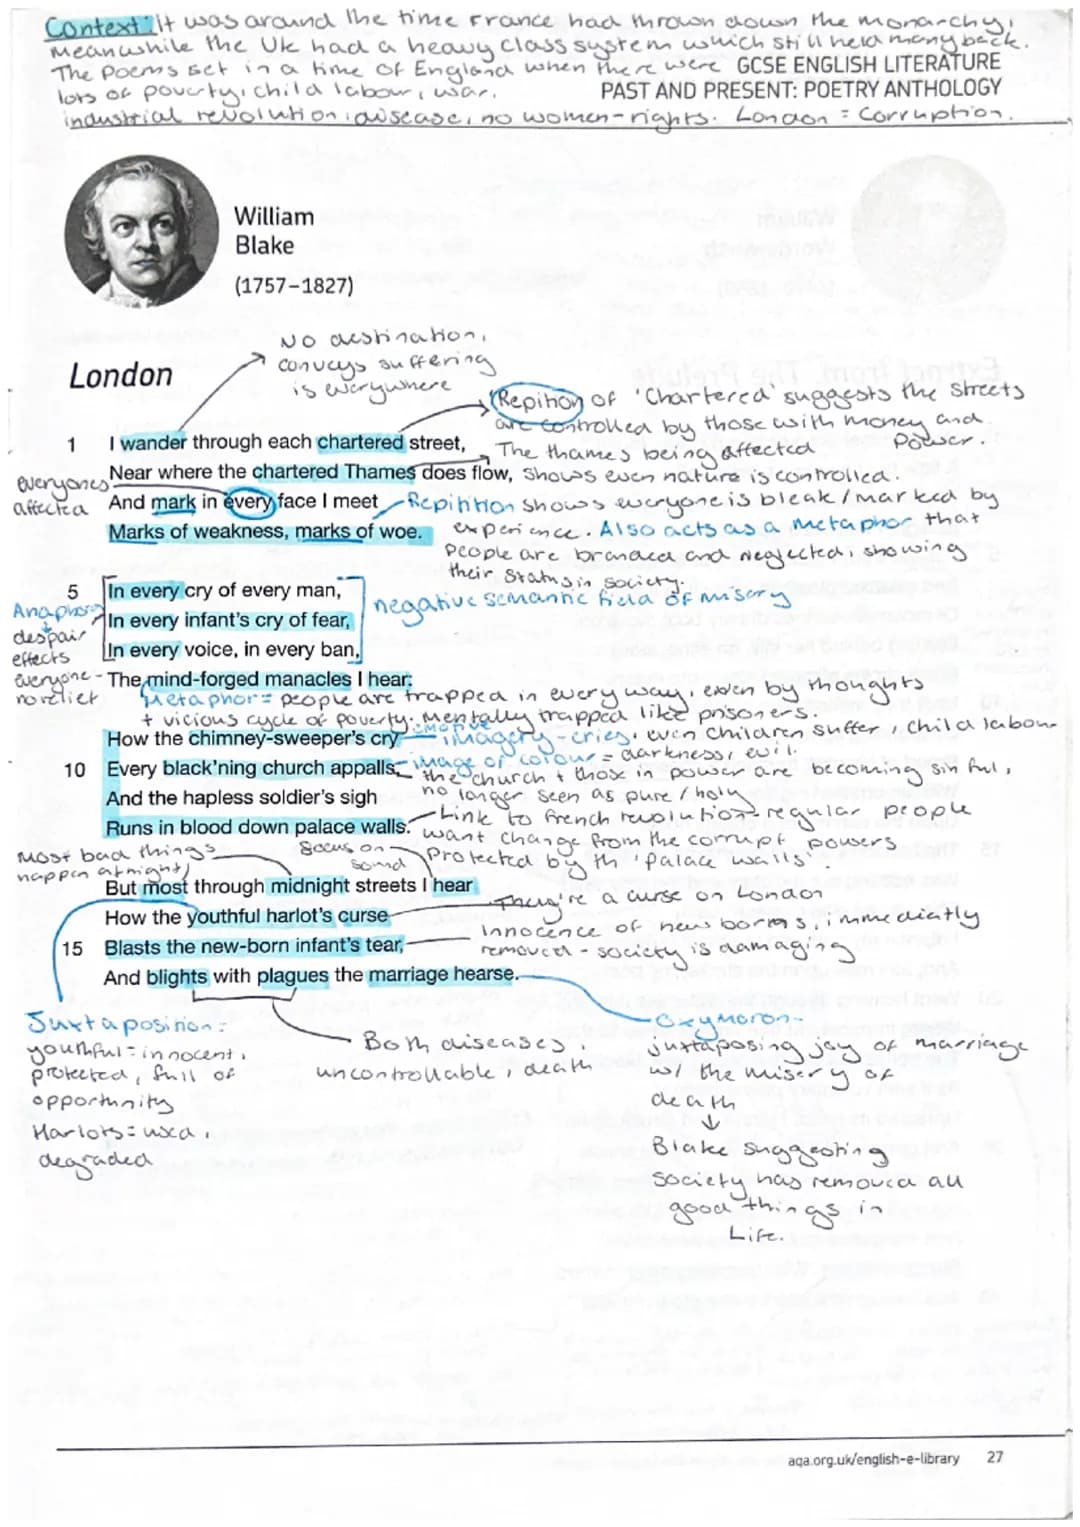 Context: It was around the time France had thrown down the monarchy,
meanwhile the UK had a heavy class system which still held many back.
The poems set in a time of England when there were
lots of poverty, child labour, war,
industrial revolution, disease, no women-rights. London = Corruption.
GCSE ENGLISH LITERATURE
PAST AND PRESENT: POETRY ANTHOLOGY
William
Blake
(1757–1827)
No destination,
conveys suffering
is everywhere
London
'Repition of 'Chartered' suggests the streets
are controlled by those with money and
Power.
1 I wander through each chartered street,
The thames being affected
Near where the chartered Thames does flow,
shows even nature is controlled.
everyones
affected
And mark in every face I meet
Repitition shows everyone is bleak / marked by
Marks of weakness, marks of woe.
experience. Also acts as a metaphor that
people are branded and neglected, showing
their status in society.
5 In every cry of every man,
negative semantic field of misery
Anaphora
despair
effects
everyone -
no relief
In every infant's cry of fear,
In every voice, in every ban,
The mind-forged manacles I hear:
Metaphor = people are trapped in every way, even by thoughts
+ vicious cycle of poverty. Mentally trapped like prisoners.
How the chimney-sweeper's cry
emotive
imagery - cries, even children suffer, child labour
10 Every black'ning church appalls,
image of colour = darkness, evil.
the church + those in power are becoming sinful,
no longer seen as pure / holy
And the hapless soldier's sigh
Runs in blood down palace walls.
Link to French revolution - regular people
want change from the corrupt powers
Protected by th 'palace walls'
Most bad things
happen at night
focus on
sound
But most through midnight streets I hear
How the youthful harlot's curse
They're a curse on London
15 Blasts the new-born infant's tear,
Innocence of new borns, immediatly
removed - society is damaging
And blights with plagues the marriage hearse.
Juxtaposition =
youthful = innocent,
protected, full of
opportunity
Harlots = used,
degraded
Both diseases,
uncontrollable, death
Oxymoron -
juxtaposing joy of marriage
w/ the misery of
death
↓
Blake suggesting
society has removed all
good things in
Life.
aqa.org.uk/english-e-library 27